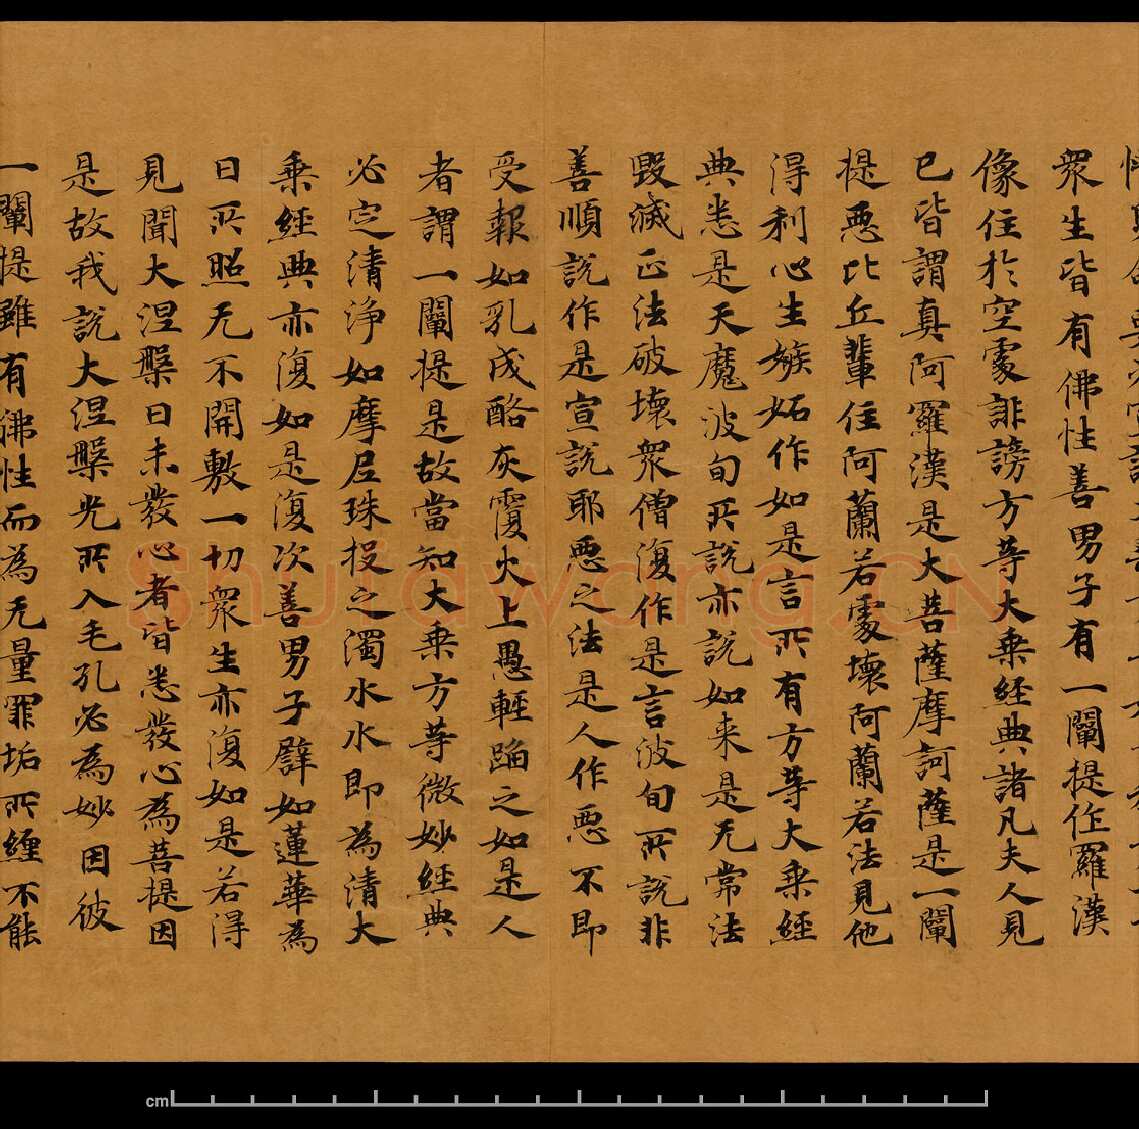 眾生皆有佛性善男子有一闡提作羅漢
像住於空處誹謗方等大乘經典諸凡夫人見
已皆謂真阿羅漢是大菩薩摩訶薩是一闡
提惡比丘輩住阿蘭若處壞阿蘭若法見他
得利心生嫉妬作如是言所有方等大乘經
典悉是天魔波旬所說亦說如来是无常法
毀滅正法破壞眾僧復作是言波旬所說非
善順說作是宣說耶惡之法是人作惡不即
受報如乳成酪灰覆火上愚輕蹈之如是人
者謂一闡提是故當知大乘方等微妙經典
必定清淨如摩尼珠投之濁水水即為清大
乘經典亦復如是復次善男子譬如蓮華為
日所照无不開敷一切眾生亦復如是若得
見聞大涅槃日未發心者皆悉發心為菩提因
是故我說大涅槃光所入毛孔必為妙因彼
一闡提雖有佛性而為无量罪垢所纏不能
shufawang.CN
cm